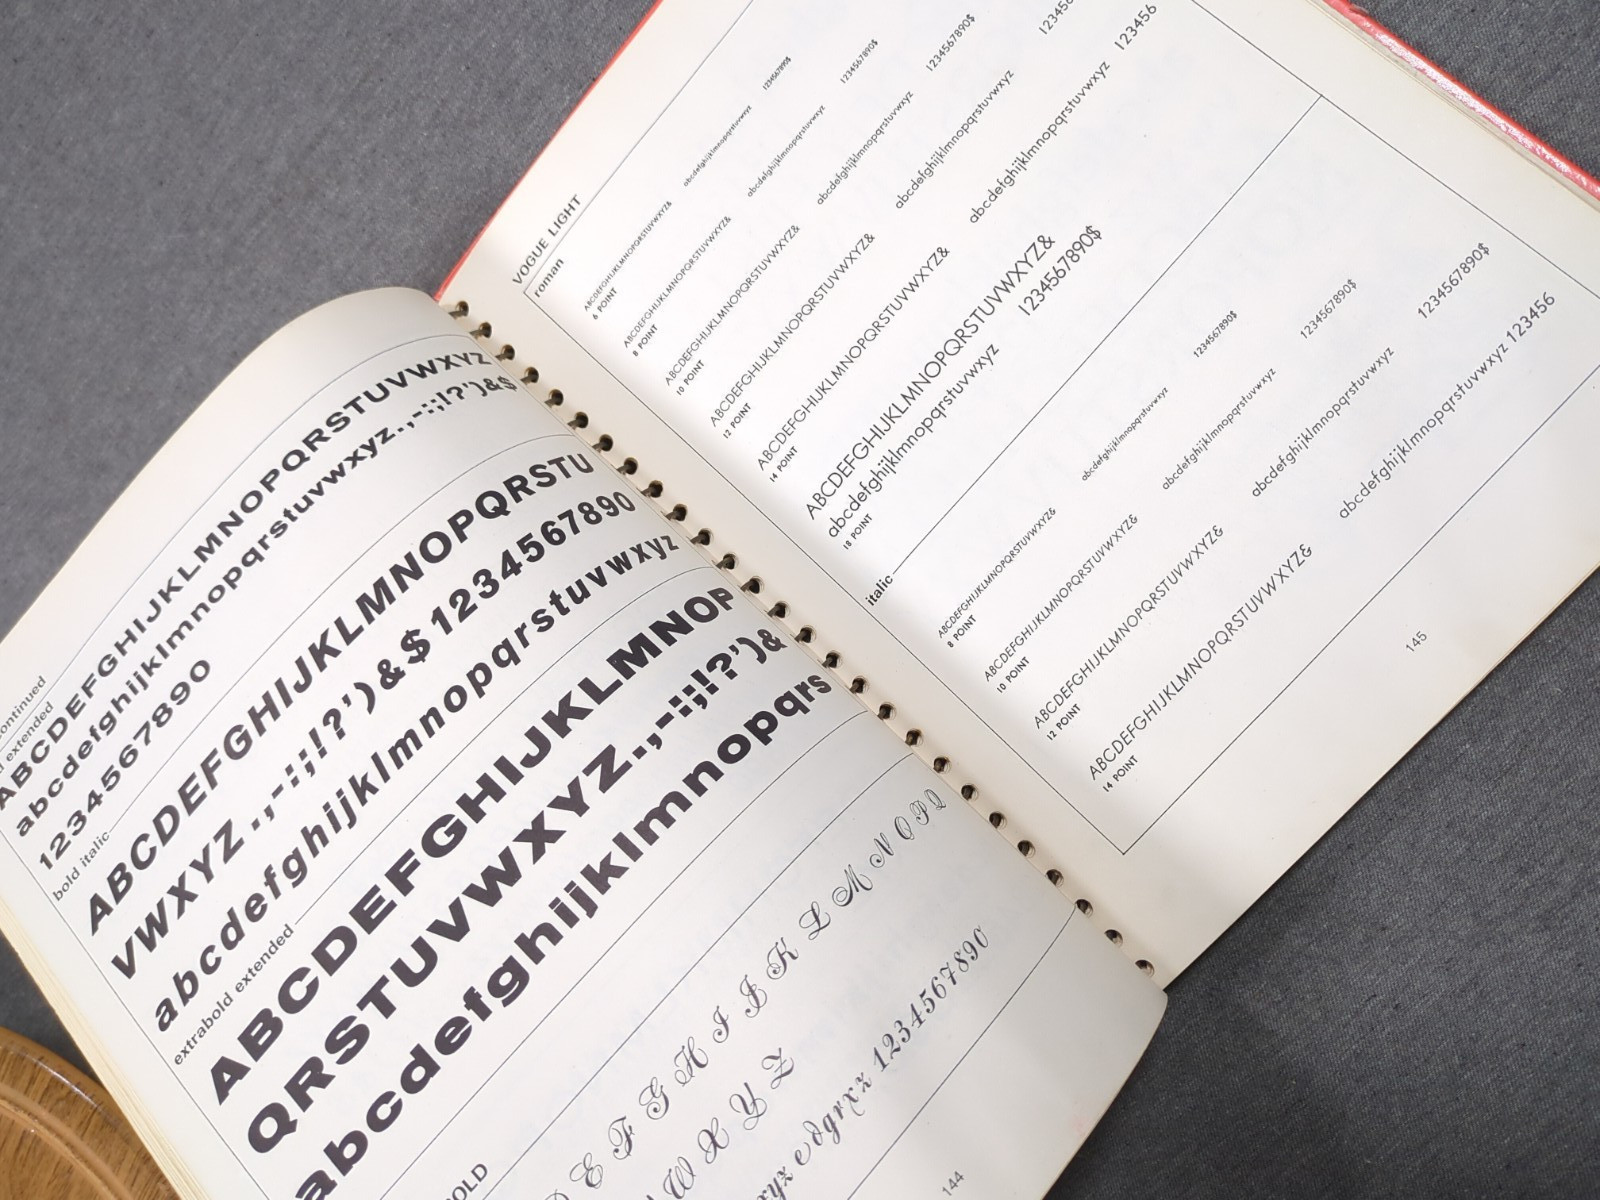 continued
extended
ABCDEFGHIJKLMNOPQRSTUVWXYZ
abcdefghijklmnopqrstuvwxyz.,-:;!?')&$
1234567890
bold italic
ABCDEFGHIJKLMNOPQRSTU
VWXYZ.,-:;!?')&$1234567890
abcdefghijklmnopqrstuvwxyz
extrabold extended
ABCDEFGHIJKLMNOP
QRSTUVWXYZ.,-:;!?')&
abcdefghijklmnopqrs
E F G H I J K L M N O P Q
W X Y Z
xyz 1234567890
144
VOGUE LIGHT
roman
ABCDEFGHIJKLMNOPQRSTUVWXYZ& abcdefghijklmnopqrstuvwxyz 1234567890$
6 POINT
ABCDEFGHIJKLMNOPQRSTUVWXYZ& abcdefghijklmnopqrstuvwxyz 1234567890$
8 POINT
ABCDEFGHIJKLMNOPQRSTUVWXYZ& abcdefghijklmnopqrstuvwxyz 1234567890$
10 POINT
ABCDEFGHIJKLMNOPQRSTUVWXYZ& abcdefghijklmnopqrstuvwxyz 123456
12 POINT
ABCDEFGHIJKLMNOPQRSTUVWXYZ& abcdefghijklmnopqrstuvwxyz 123456
14 POINT
ABCDEFGHIJKLMNOPQRSTUVWXYZ&
abcdefghijklmnopqrstuvwxyz 1234567890$
18 POINT
italic
ABCDEFGHIJKLMNOPQRSTUVWXYZ& abcdefghijklmnopqrstuvwxyz 1234567890$
8 POINT
ABCDEFGHIJKLMNOPQRSTUVWXYZ& abcdefghijklmnopqrstuvwxyz 1234567890$
10 POINT
ABCDEFGHIJKLMNOPQRSTUVWXYZ& abcdefghijklmnopqrstuvwxyz 1234567890$
12 POINT
ABCDEFGHIJKLMNOPQRSTUVWXYZ& abcdefghijklmnopqrstuvwxyz 123456
14 POINT
145